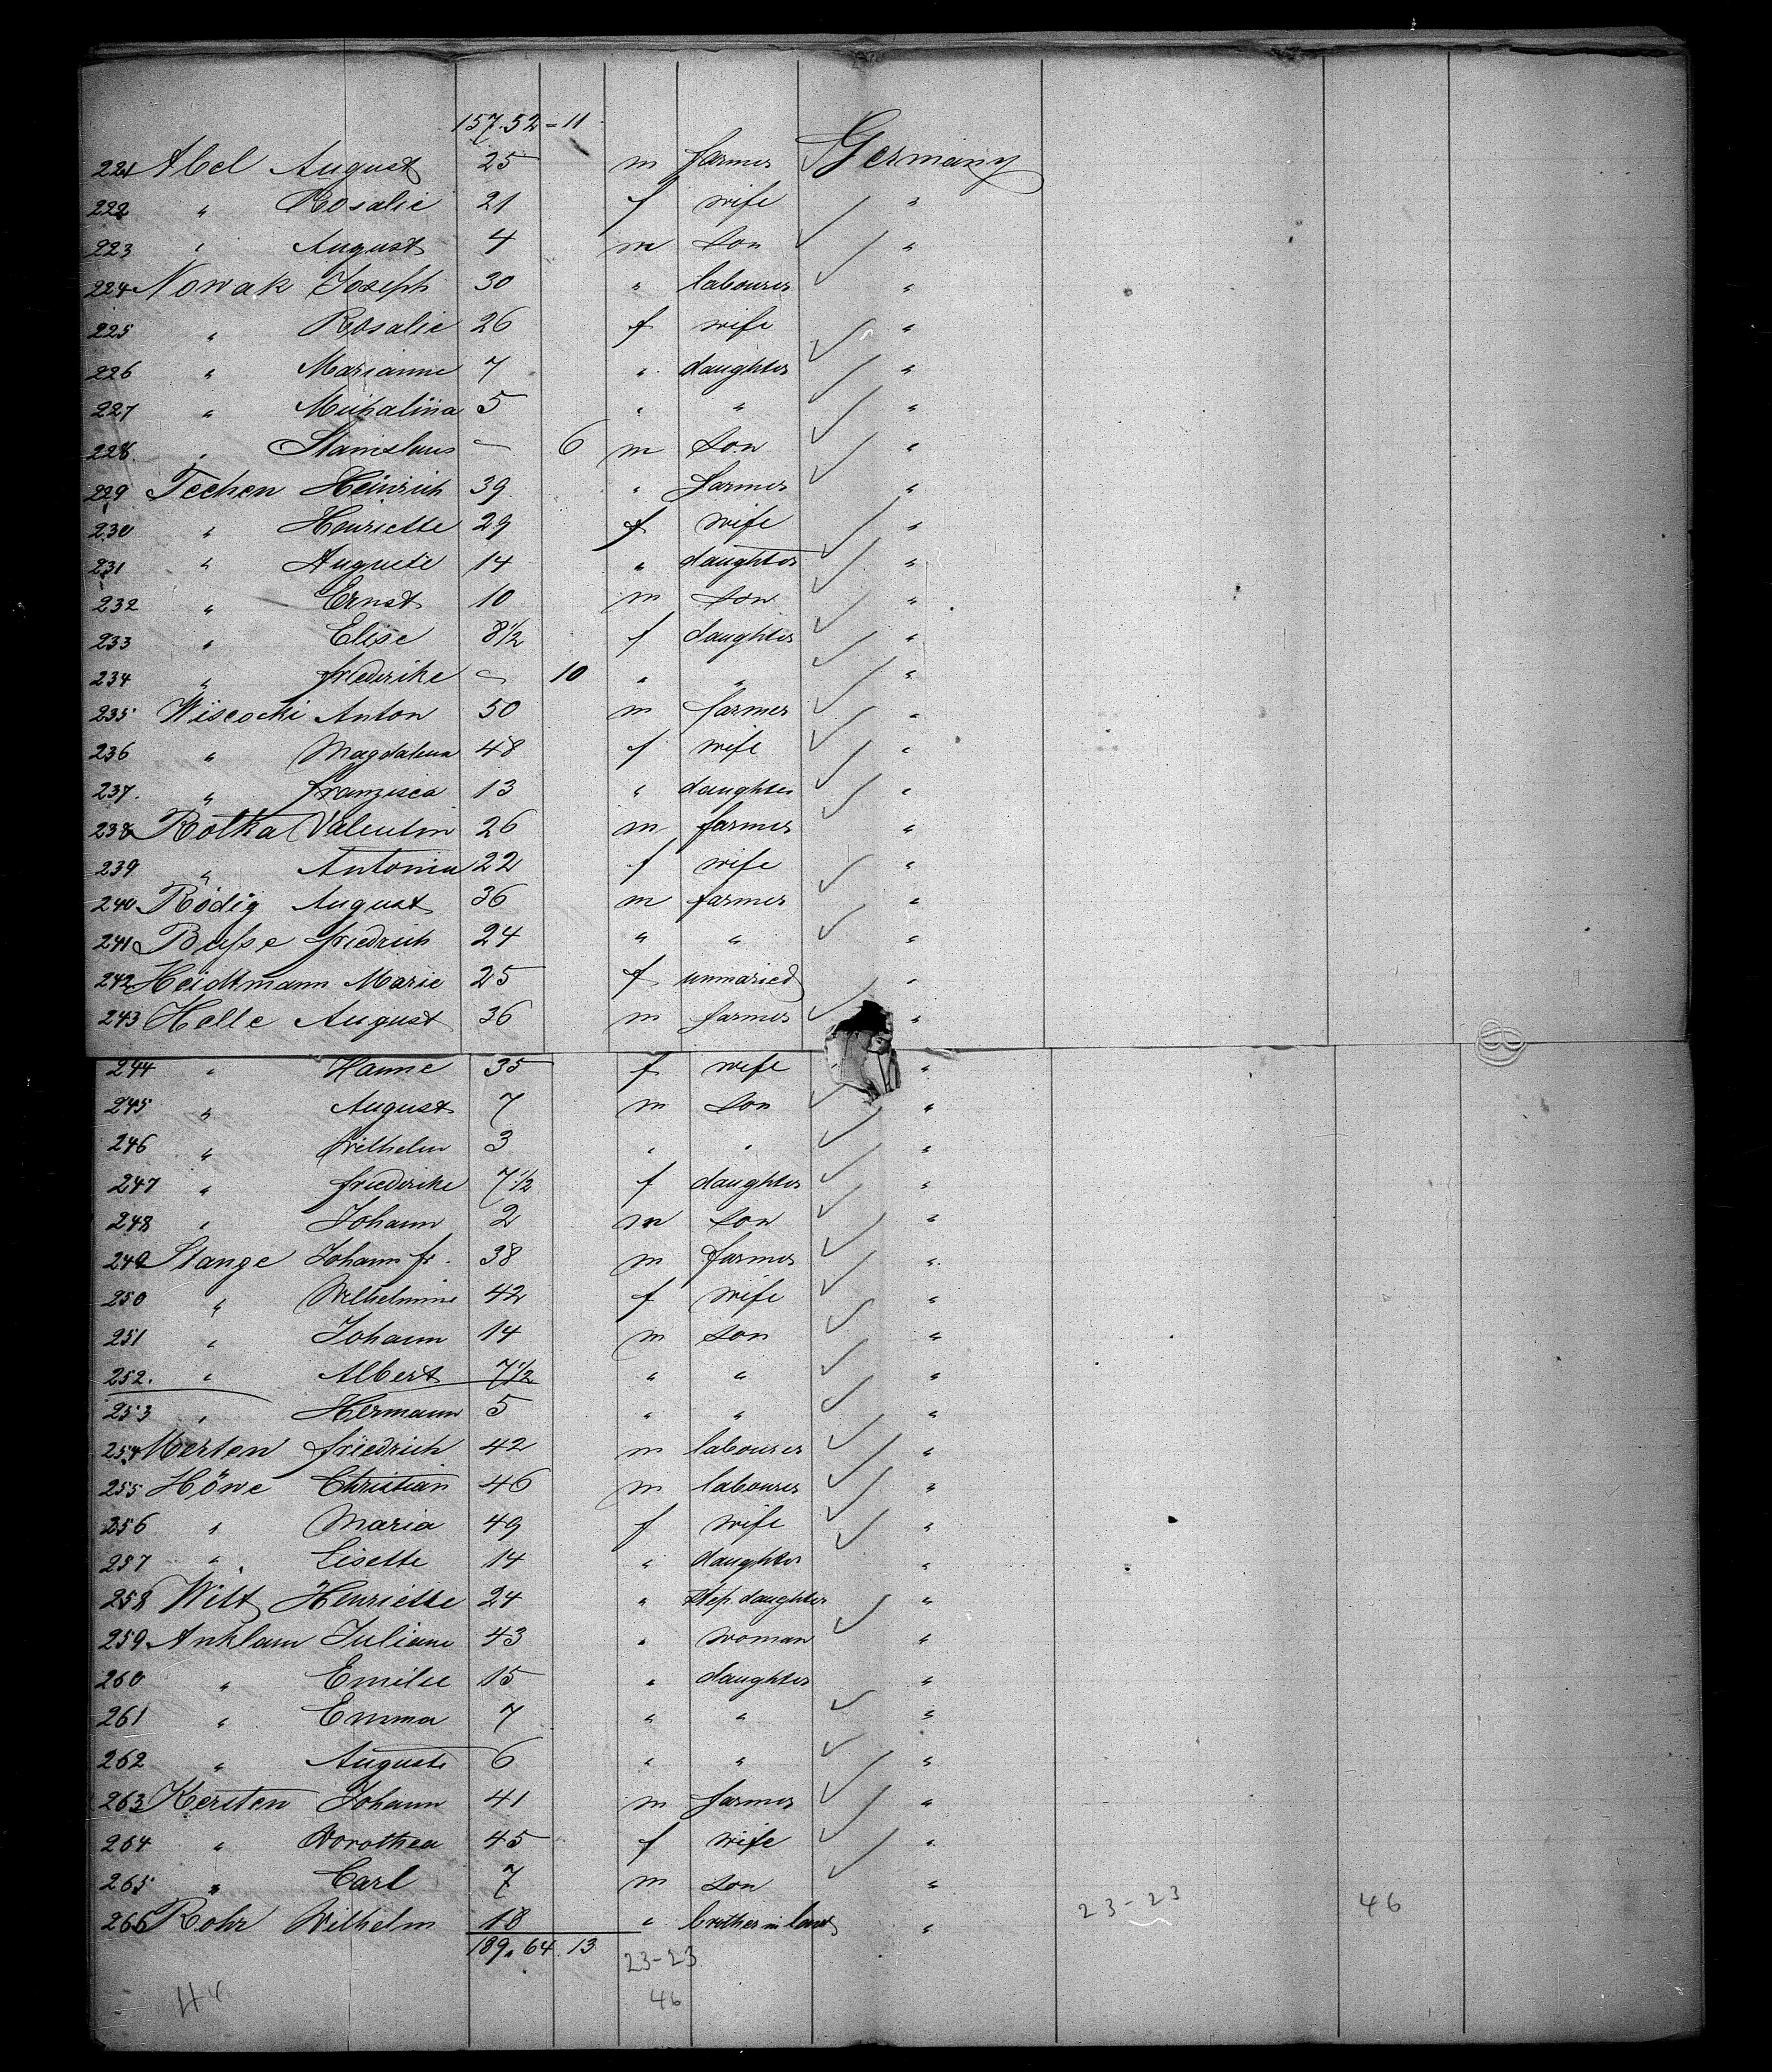 157. 52 - 11
221 Abel August 25 m farmer Germany
222 " Rosalie 21 f wife "
223 " August 4 m son "
224 Nowak Joseph 30 " labourer "
225 " Rosalie 26 f wife "
226 " Marianne 7 " daughter "
227 " Michalina 5 " " "
228 " Stanislaus — 6 m son "
229 Techen Heinrich 39 " farmer "
230 " Henriette 29 f wife "
231 " Auguste 14 " daughter "
232 " Ernst 10 m son "
233 " Elise 8 1/2 f daughter "
234 " Friederike — 10 " " "
235 Wiscocki Anton 50 m farmer "
236 " Magdalena 48 f wife "
237. " Franzisca 13 " daughter "
238 Rolka Valentin 26 m farmer "
239 " Antonia 22 f wife "
240 Rödig August 36 m farmer "
241 Buße Friedrich 24 " " "
242 Heidtmann Marie 25 f unmaried "
243 Helle August 36 m farmer "
244 " Hanne 35 f wife "
245 " August 7 m son "
246 " Wilhelm 3 " " "
247 " Friederike 7 1/2 f daughter "
248 " Johann 2 m son "
249 Stange Johann Fr. 38 m farmer "
250 " Wilhelmine 42 f wife "
251 " Johann 14 m son "
252. " Albert 7 1/2 " " "
253 " Hermann 5 " " "
254 Merten Friedrich 42 m labourer "
255 Höwe Christian 46 m labourer "
256 " Maria 49 f wife "
257 " Lisette 14 " daughter "
258 Witt Henriette 24 " step. daughter "
259 Anklam Juliane 43 " woman "
260 " Emilie 15 " daughter "
261 " Emma 7 " " "
262 " Auguste 6 " " "
263 Kersten Johann 41 m farmer "
264 " Dorothea 45 f wife "
265 " Carl 7 m son "
266 Rohr Wilhelm 18 " brother in law " 23-23 46
189. 64. 13 23-23
46